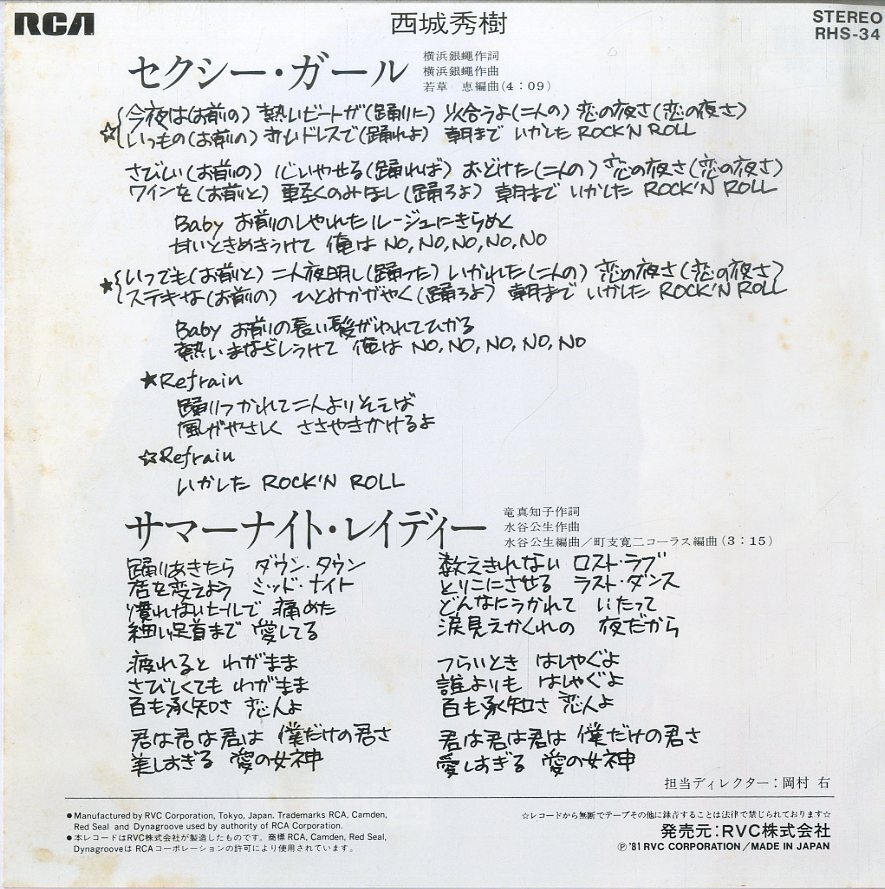 RCA
西城秀樹
STEREO
RHS-34
セクシー・ガール
横浜銀蠅作詞
横浜銀蠅作曲
若草 恵編曲(4:09)
☆{今夜は(お前の) 熱いビートが(踊りに) 火合うよ(二人の) 恋の夜さ(恋の夜さ)
いつもの(お前の) 赤いドレスで(踊れよ) 朝まで いかした ROCK'N ROLL
さびしい(お前の) 心いやせる(踊れば) おどけた(二人の) 恋の夜さ(恋の夜さ)
ワインを(お前と) 軽くのみほし(踊ろよ) 朝まで いかした ROCK'N ROLL
Baby お前のしゃれたルージュにきらめく
甘いときめきうけて 俺は NO, NO, NO, NO, NO
★{いつでも(お前と) 二人夜明し(踊った) いかれた(二人の) 恋の夜さ(恋の夜さ)
ステキな(お前の) ひとみかがやく(踊ろよ) 朝まで いかした ROCK'N ROLL
Baby お前の長い髪がゆれてひかる
熱いまなざしうけて 俺は NO, NO, NO, NO, NO
★Refrain
踊りつかれて二人よりそえば
風がやさしく ささやきかけるよ
☆Refrain
いかした ROCK'N ROLL
サマーナイト・レイディー
竜真知子作詞
水谷公生作曲
水谷公生編曲/町支寛二コーラス編曲(3:15)
踊りあきたら ダウン・タウン
店を変えよう ミッド・ナイト
慣れないヒールで 痛めた
細い足首まで 愛してる
疲れると わがまま
さびしくても わがまま
百も承知さ 恋人よ
君は君は君は 僕だけの君さ
美しすぎる 愛の女神
数えきれない ロスト・ラブ
とりこにさせる ラスト・ダンス
どんなにうかれて いたって
涙見えかくれの 夜だから
つらいとき はしゃぐよ
誰よりも はしゃぐよ
百も承知さ 恋人よ
君は君は君は 僕だけの君さ
愛しすぎる 愛の女神
担当ディレクター:岡村 右
●Manufactured by RVC Corporation, Tokyo, Japan. Trademarks RCA, Camden,
Red Seal and Dynagroove used by authority of RCA Corporation.
●本レコードはRVC株式会社が製造したものです。商標 RCA, Camden, Red Seal,
Dynagrooveは RCAコーポレーションの許可により使用されています。
☆レコードから無断でテープその他に録音することは法律で禁じられております☆
発売元:RVC株式会社
Ⓟ '81 RVC CORPORATION/MADE IN JAPAN